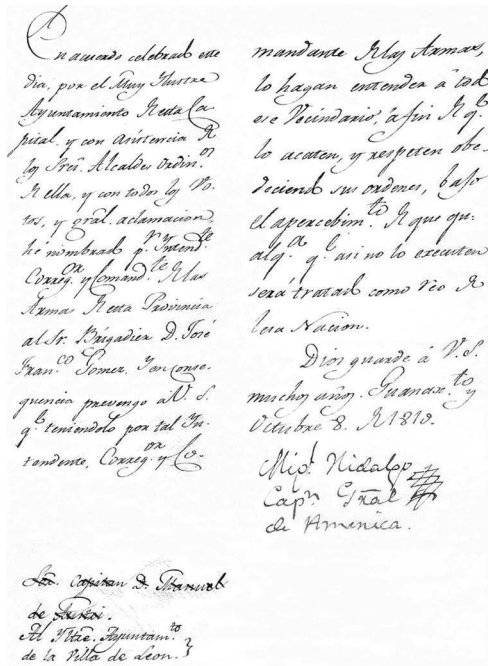 En acuerdo celebrad este
dia, por el Muy Ilustre
Ayuntamiento de esta Ca-
pital, y con asistencia de
los Sres. Alcaldes ordin.os
de ella, y con todos los Vo-
tos, y gral. aclamacion
hé nombrad p.r Intend.te
Correg.or y Comand.te de las
Armas de esta Provincia
al Sr. Brigadier D. José
Fran.co Gomez. Y en conse-
quencia prevengo a V. S.
q.e teniendolo por tal In-
tendente, Correg.or y Co-
mandante de las Armas,
lo hagan entender á tod
ese Vecindario, á fin de q.e
lo acaten, y respeten obe-
deciend sus ordenes, baxo
el apercebim.to de que qu-
alq.a q.e asi no lo execute
será tratad como reo de
lesa Nacion.
Dios guarde á V. S.
muchos años. Guanax.to y
Octubre 8. de 1810.
Mig.l Hidalgo
Cap.n Gral
de America.
Sor. Capitan D. Manuel
de
Al Yltre. Ayuntam.to
de la Villa de Leon.